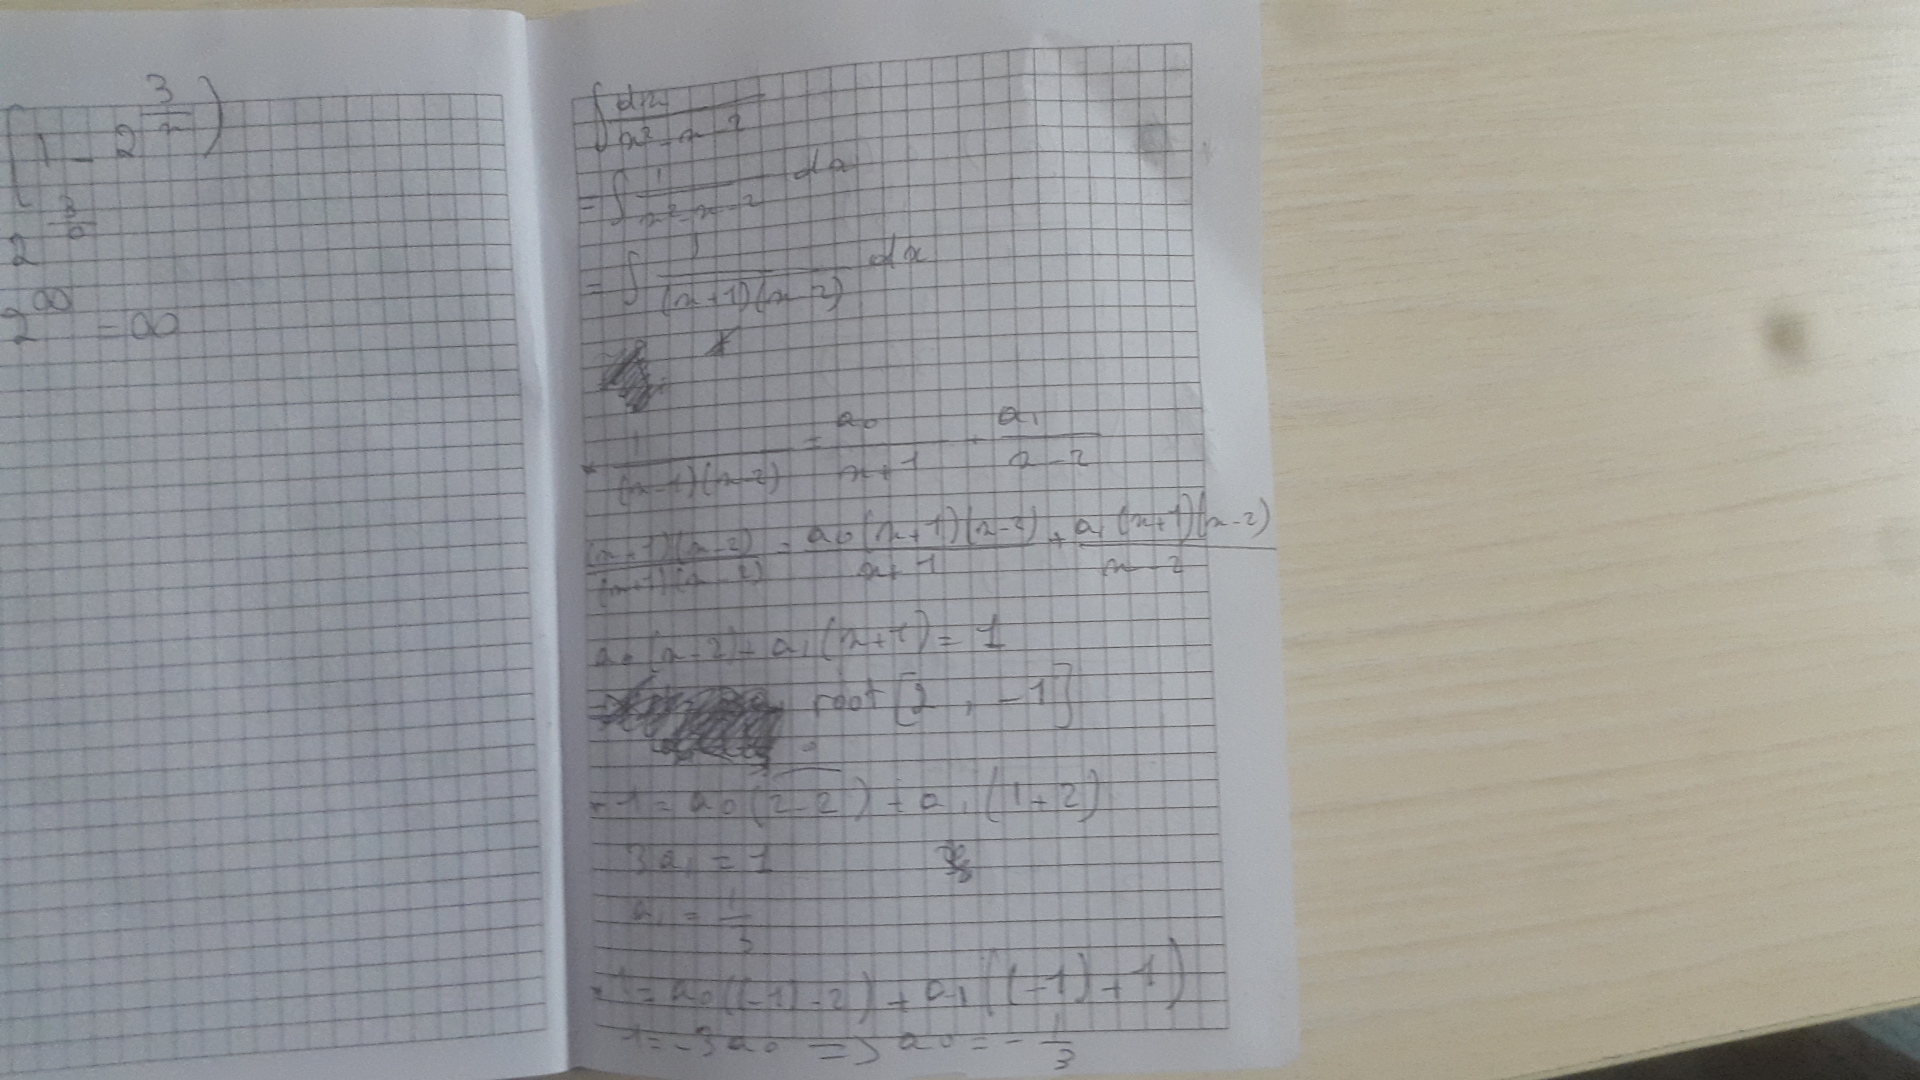 (1 - 2^(3/x))
2^(3/0)
2^∞ = ∞
∫ dx/(x² - x - 2)
= ∫ 1/(x² - x - 2) dx
= ∫ 1/((x+1)(x-2)) dx
*
* 1/((x-1)(x-2)) = a₀/(x+1) + a₁/(x-2)
(x+1)(x-2)/((x+1)(x-2)) = a₀(x+1)(x-2)/(x+1) + a₁(x+1)(x-2)/(x-2)
a₀(x-2) + a₁(x+1) = 1
root [2, -1]
0
- 1 = a₀(2-2) + a₁(1+2)
3a₁ = 1
a₁ = 1/3
- 1 = a₀((-1)-2) + a₁((-1)+1)
1 = -3a₀ => a₀ = -1/3